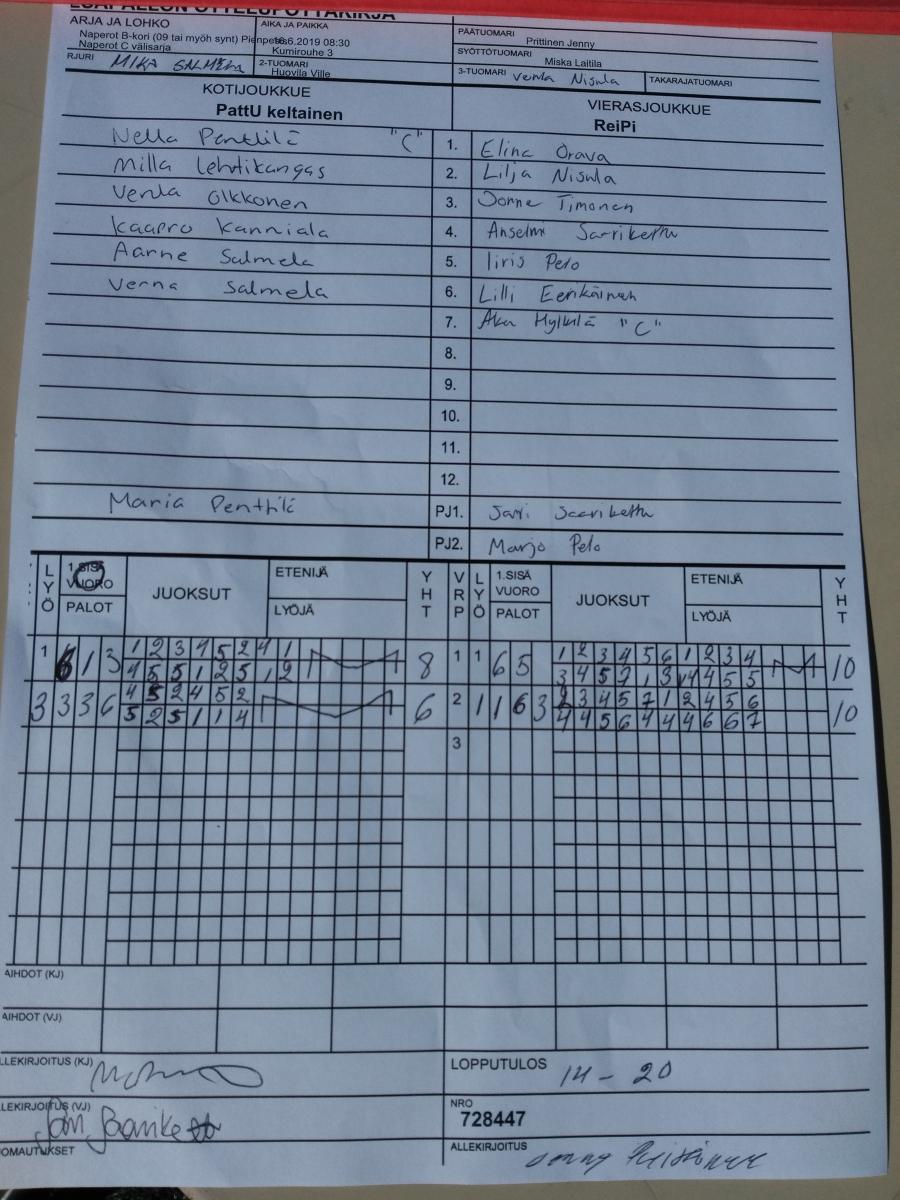 ARJA JA LOHKO
Naperot B-kori (09 tai myöh synt)
Naperot C välisarja
AIKA JA PAIKKA
6.2019 08:30
Kumirouhe 3
PÄÄTUOMARI
Prittinen Jenny
SYÖTTÖTUOMARI
Miska Laitila
RJURI MIKA SALMELA
2-TUOMARI
Huovila Ville
3-TUOMARI Venla Nisula
TAKARAJATUOMARI
KOTIJOUKKUE
PattU keltainen
VIERASJOUKKUE
ReiPi
Nella Penttilä "C" 1. Elina Orava
Milla Lehtikangas 2. Lilja Nisula
Venla Olkkonen 3. Timonen
Kaapro Kanniala 4. Anselmi Saarikettu
Aarne Salmela 5. Iiris Pelo
Verna Salmela 6. Lilli Eerikäinen
7. Hylkilä "C"
8.
9.
10.
11.
12.
Maria Penttilä PJ1. Jari Saarikettu
PJ2. Marjo Pelo
LYÖ 1.SISÄ VUORO PALOT JUOKSUT ETENIJÄ LYÖJÄ YHT VRP LYÖ 1.SISÄ VUORO PALOT JUOKSUT ETENIJÄ LYÖJÄ YHT
1 6 1 3 1 2 3 4 5 2 4 1 8 1 1 6 5 1 2 3 4 5 6 1 2 3 4 10
4 5 5 1 2 5 1 2
3 3 3 6 4 5 2 4 5 2 6 2 1 1 6 3 2 3 4 5 7 1 2 4 5 6 10
5 2 5 1 1 4 4 4 5 6 4 4 4 6 6 7
3
AIHDOT (KJ)
AIHDOT (VJ)
LLEKIRJOITUS (KJ)
LOPPUTULOS 14 - 20
LEKIRJOITUS (VJ) Jari Saarikettu
NRO
728447
OMAUTUKSET
ALLEKIRJOITUS